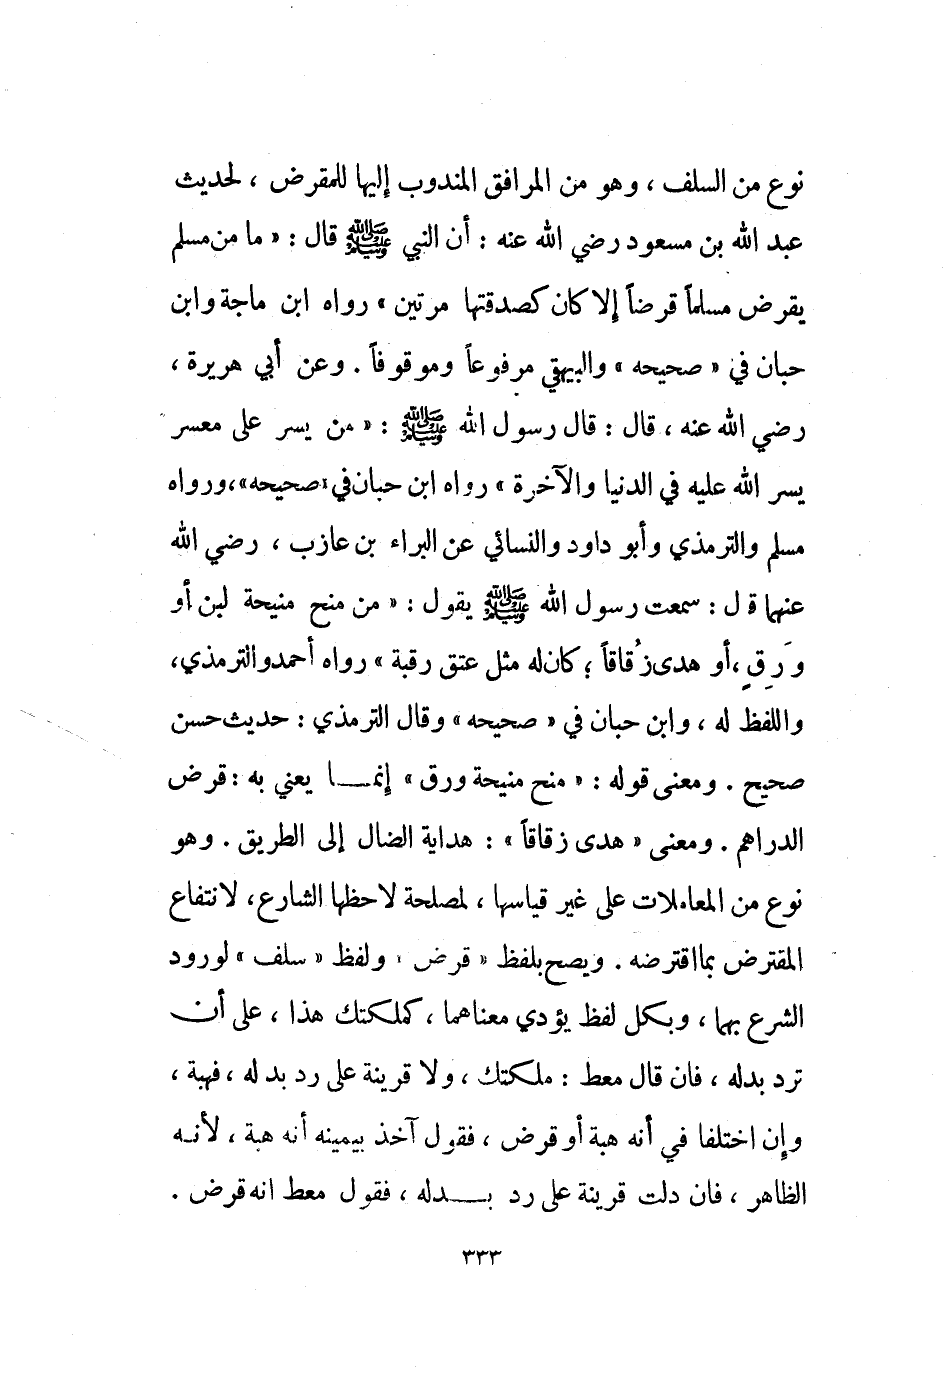 نوع من السلف ، وهو من المرافق المندوب إليها للمقرض ، لحديث
عبد الله بن مسعود رضي الله عنه : أن النبي ﷺ قال : « ما من مسلم
يقرض مسلماً قرضاً إلا كان كصدقتها مرتين » رواه ابن ماجة وابن
حبان في « صحيحه » والبيهقي مرفوعاً وموقوفاً . وعن أبي هريرة ،
رضي الله عنه ، قال : قال رسول الله ﷺ : « من يسر على معسر
يسر الله عليه في الدنيا والآخرة » رواه ابن حبان في «صحيحه»،ورواه
مسلم والترمذي وأبو داود والنسائي عن البراء بن عازب ، رضي الله
عنهما قال : سمعت رسول الله ﷺ يقول : « من منح منيحة لبن أو
وَرِقٍ ،أو هدى زُقاقاً ؛ كان له مثل عتق رقبة » رواه أحمد والترمذي،
واللفظ له ، وابن حبان في « صحيحه » وقال الترمذي : حديث حسن
صحيح . ومعنى قوله : « منح منيحة ورق » إنمــا يعني به : قرض
الدراهم . ومعنى « هدى زقاقاً » : هداية الضال إلى الطريق . وهو
نوع من المعاملات على غير قياسها ، لمصلحة لاحظها الشارع، لانتفاع
المقترض بما اقترضه . ويصح بلفظ « قرض » ولفظ « سلف » لورود
الشرع بهما ، وبكل لفظ يؤدي معناهما ، كملكتك هذا ، على أن
ترد بدله ، فان قال معط : ملكتك ، ولا قرينة على رد بدله ، فهبة ،
وإن اختلفا في أنه هبة أو قرض ، فقول آخذ بيمينه أنه هبة ، لأنــه
الظاهر ، فان دلت قرينة على رد بــدله ، فقول معط انه قرض .
٣٣٣